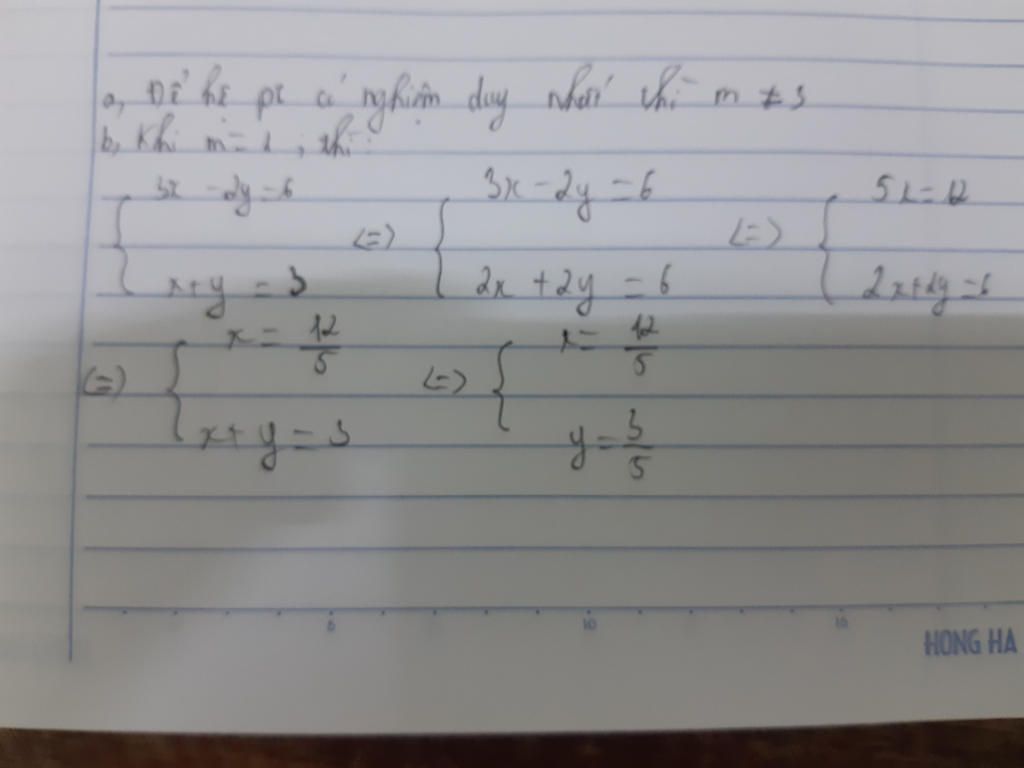 a, Để hệ pt có nghiệm duy nhất thì m ≠ 3
b, Khi m = 1 ; thì :
{ 3x - 2y = 6 <=> { 3x - 2y = 6 <=> { 5x = 12
x + y = 3 2x + 2y = 6 2x + 2y = 6
<=> { x = 12/5 <=> { x = 12/5
x + y = 3 y = 3/5
5 10 15
HONG HA